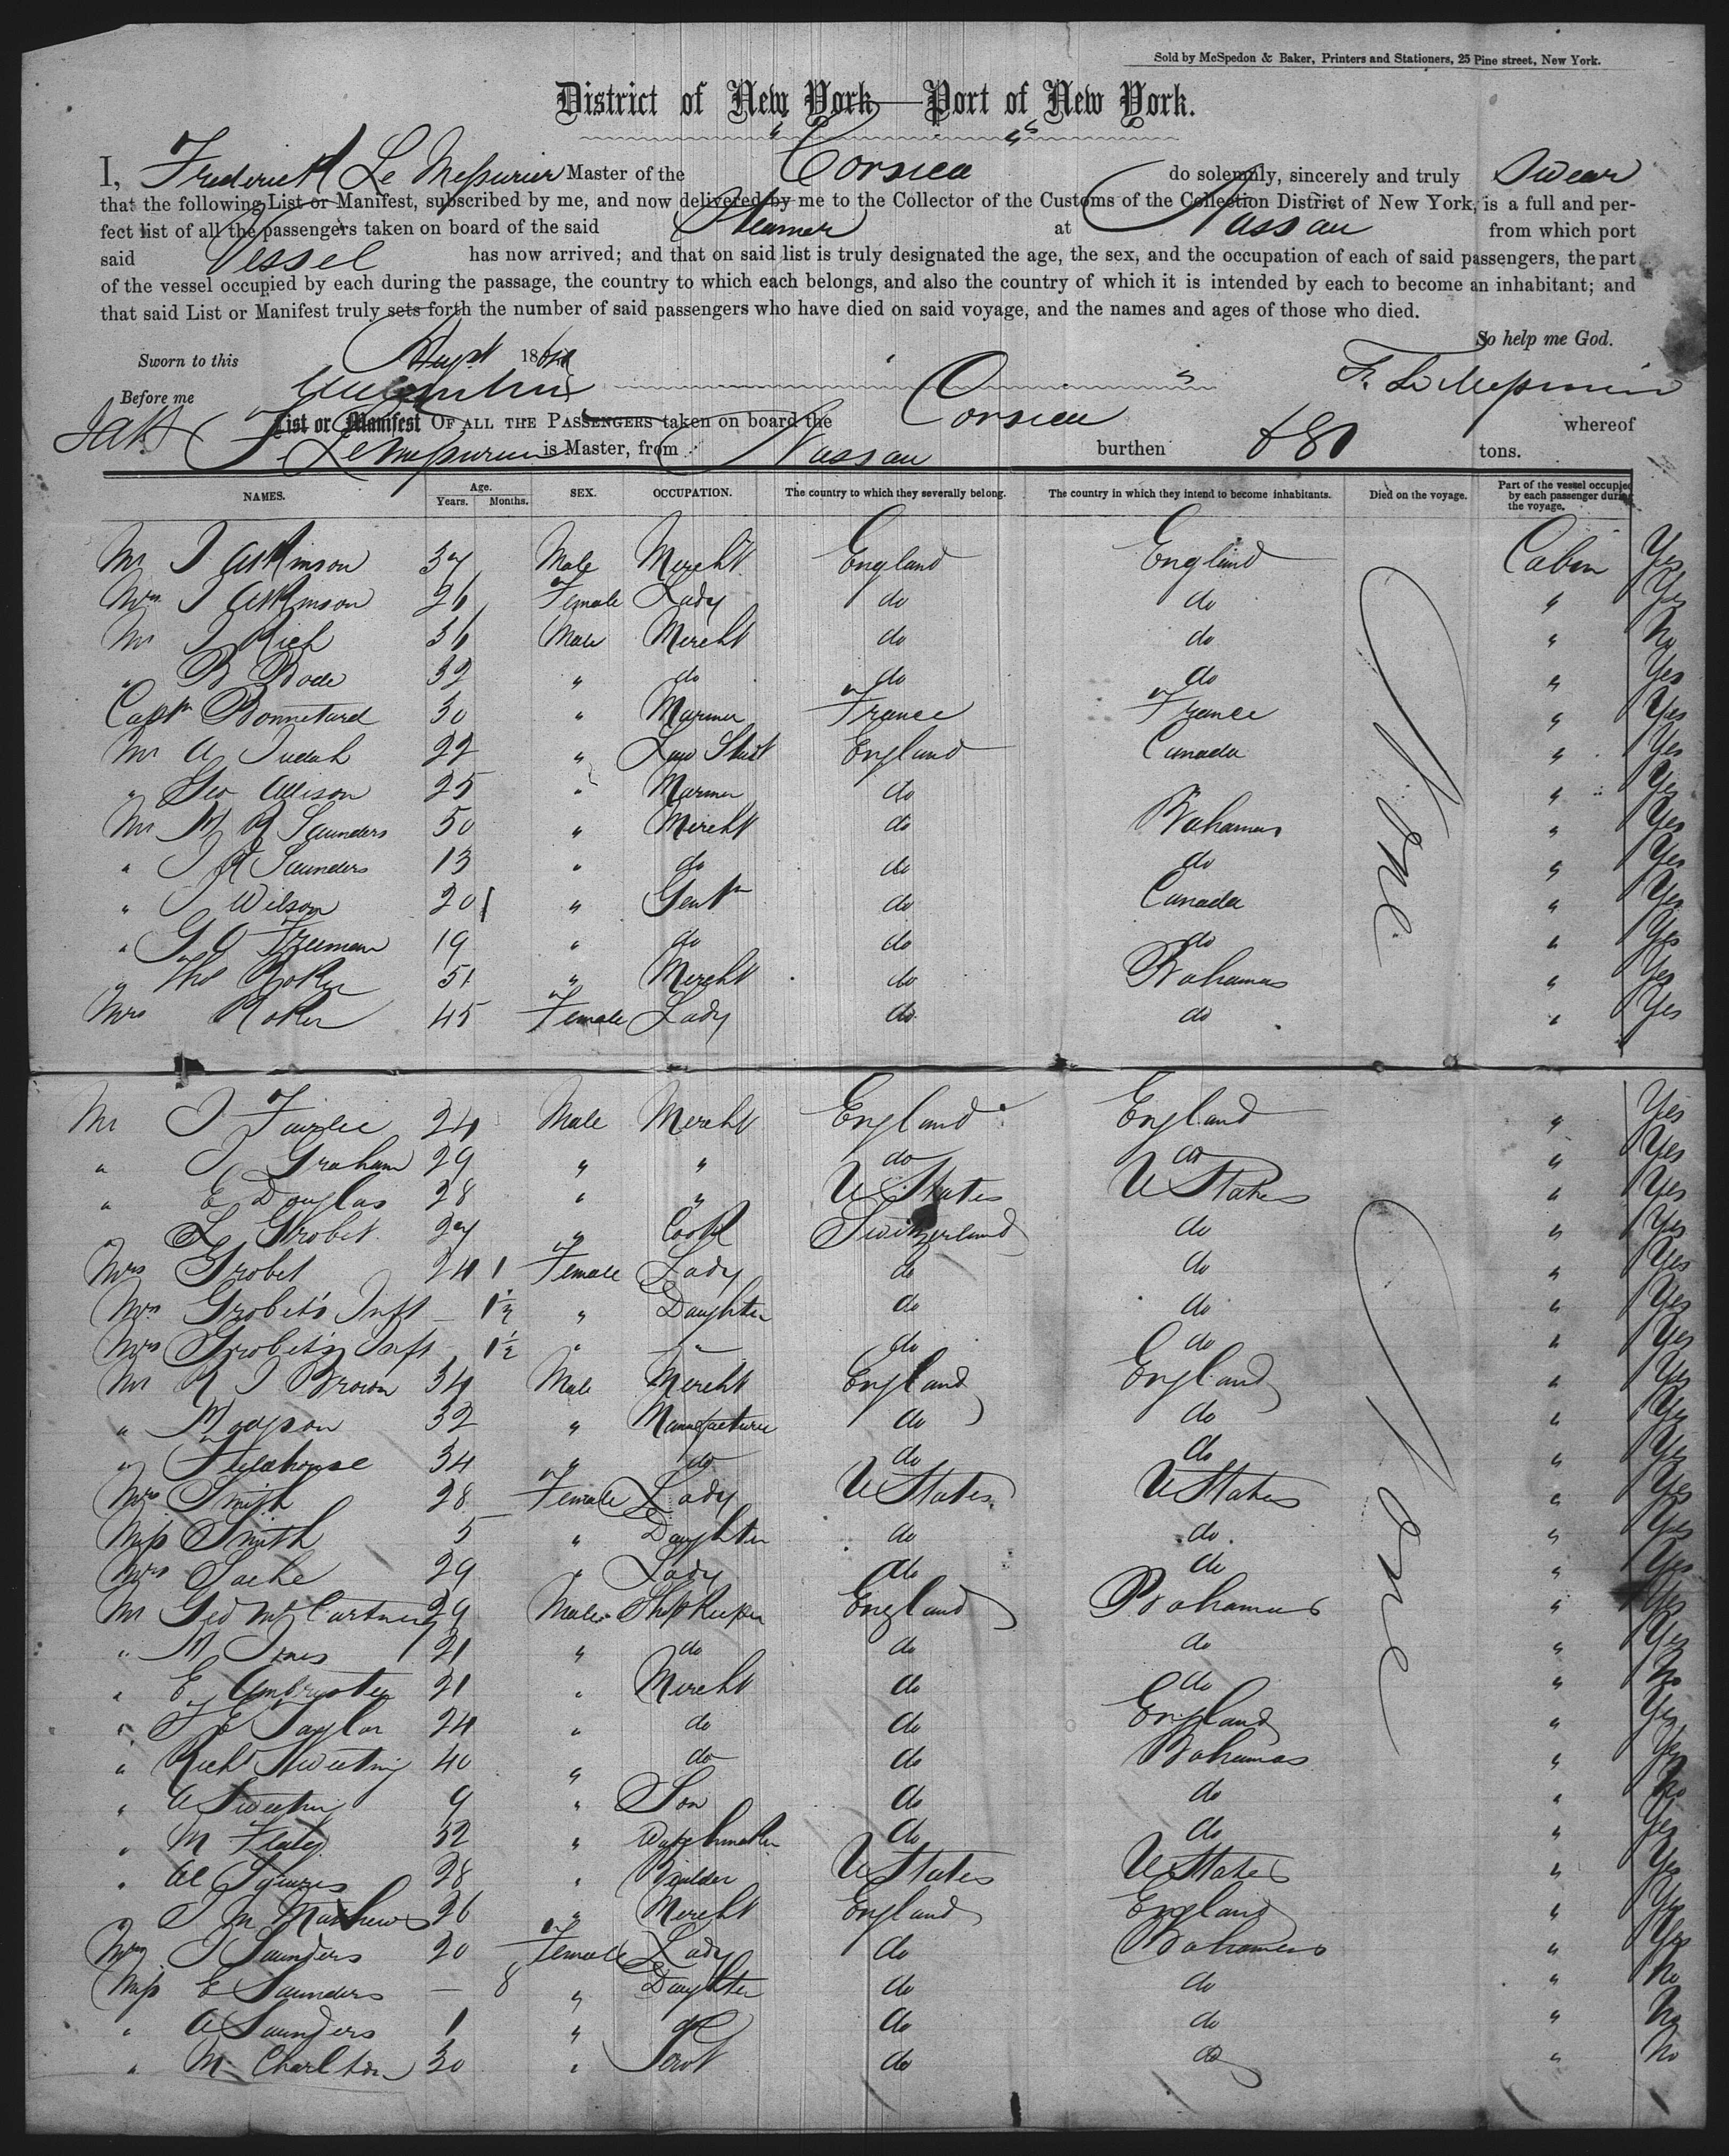 Sold by McSpedon & Baker, Printers and Stationers, 25 Pine street, New York.
District of New York—Port of New York.
I, Frederick Le Mesurier Master of the Corsica do solemnly, sincerely and truly Swear
that the following List or Manifest, subscribed by me, and now delivered by me to the Collector of the Customs of the Collection District of New York, is a full and per-
fect list of all the passengers taken on board of the said Steamer at Nassau from which port
said Vessel has now arrived; and that on said list is truly designated the age, the sex, and the occupation of each of said passengers, the part
of the vessel occupied by each during the passage, the country to which each belongs, and also the country of which it is intended by each to become an inhabitant; and
that said List or Manifest truly sets forth the number of said passengers who have died on said voyage, and the names and ages of those who died.
So help me God.
Sworn to this Augst 1864
Before me F. Le Mesurier
List or Manifest OF ALL THE PASSENGERS taken on board the Corsica whereof
F. Le Mesurier is Master, from Nassau burthen 680 tons.
NAMES. Age. Years. Months. SEX. OCCUPATION. The country to which they severally belong. The country in which they intend to become inhabitants. Died on the voyage. Part of the vessel occupied by each passenger during the voyage.
Mr J Atkinson 37 Male Mercht England England Cabin Yes
Mrs J Atkinson 26 Female Lady do do " Yes
Mr J Rich 36 Male Mercht do do " No
" B Bode 32 " do do do " Yes
Captn Bonnetard 30 " Mariner France France " Yes
Mr A Judah 22 " Law Studt England Canada " Yes
" Geo Allison 25 " Mariner do " Yes
Mr W R Saunders 50 " Mercht do Bahamas " Yes
" J R Saunders 13 " do do do " Yes
" J Wilson 20 " Gentn do Canada " Yes
" G O Freeman 19 " do do do " Yes
" Tho Roker 51 " Mercht do Bahamas " Yes
Mrs Roker 45 Female Lady do do " Yes
None
Mr J Fairlie 24 Male Mercht England England " Yes
" J Graham 29 " " do do " Yes
" E Douglas 28 " " U States U States " Yes
" L Grobet 27 " Cook Switzerland do " Yes
Mrs Grobet 24 1 Female Lady do do " Yes
Mrs Grobet's Inft — 1½ " Daughter do do " Yes
Mrs Grobet's Inft 1½ " " do do " Yes
Mr R J Brown 34 Male Mercht England England " Yes
" Hodgson 32 " Manufacturer do do " Yes
" 34 " do do do " Yes
Mrs Smith 28 Female Lady U States U States " Yes
Miss Smith 5 " Daughter do do " Yes
Mrs Sache 29 " Lady do do " Yes
Mr Geo McCartney 29 Male Shopkeeper England Bahamas " Yes
" 21 " do do do " Yes
" E Armbrister 21 " Mercht do do " No
" T E Taylor 24 " do do England " Yes
" Richd Sweeting 40 " do do Bahamas " Yes
" A Sweeting 9 " Son do do " No
" M 32 " Watchmaker do do " Yes
" Al Squires 28 " Builder U States U States " Yes
" J M Mathews 26 " Mercht England England " Yes
Mrs J Saunders 20 Female Lady do Bahamas " Yes
Miss E Saunders — 8 " Daughter do do " No
" A Saunders 1 " do do do " No
" M Charlton 30 " Servt do do " No
None